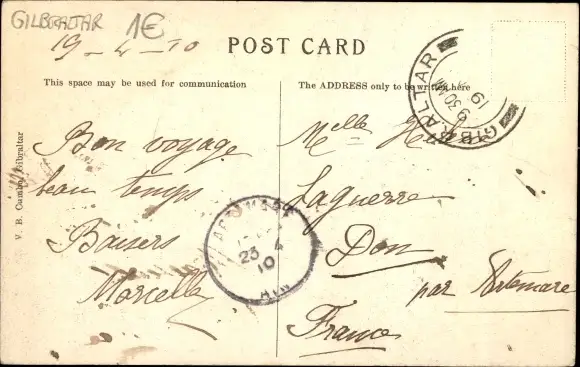 GILBRALTAR 1€
19 - 4 - 10
POST CARD
This space may be used for communication
The ADDRESS only to be written here
V. B. Cumbo, Gibraltar
Bon voyage
beau temps
Baisers
Marcelle
Melle
Laguerre
Don
par Artemare
France
GIBRALTAR
9 30 AM
19
ARTEMARE
23 4
10
AIN